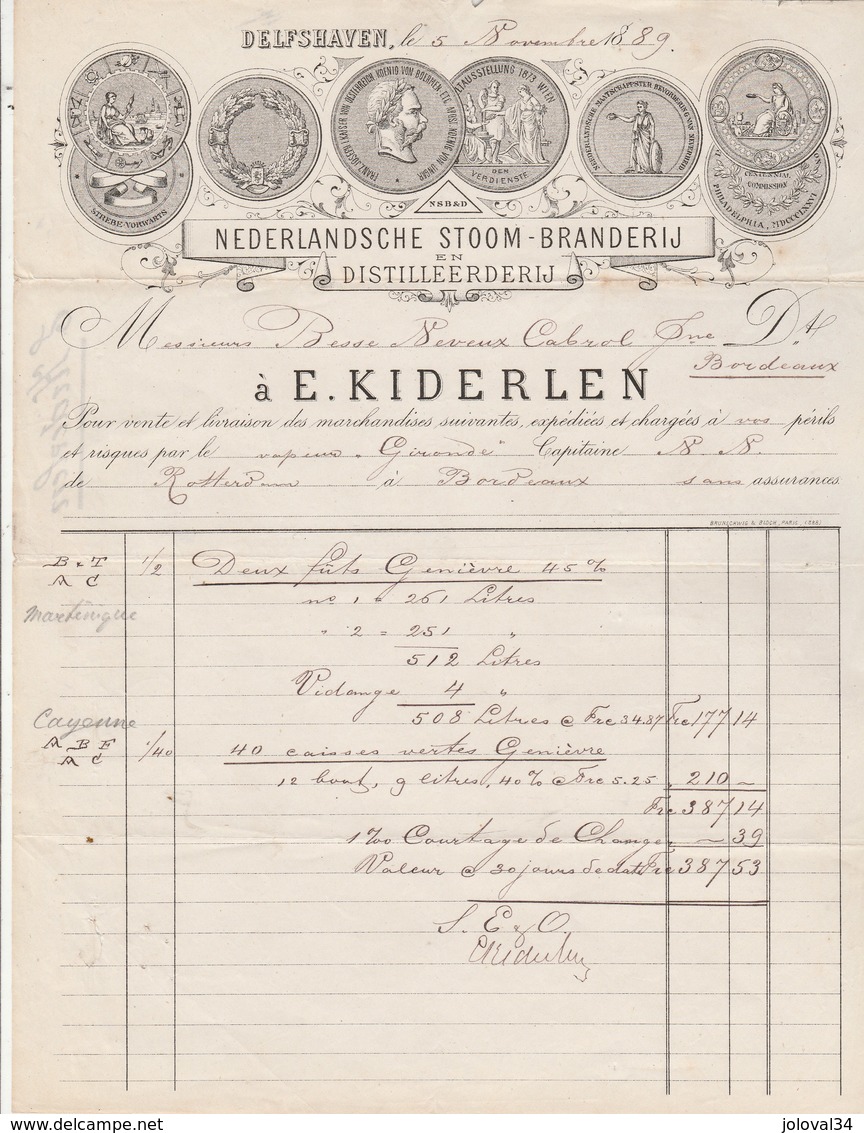 DELFSHAVEN, le 5 Novembre 1889.
STREBE-VORWÄRTS
FRANZ JOSEPH I KAISER VON OESTERREICH KOENIG VON BOEHMEN ETC. APOST. KOENIG VON UNGARN
WELTAUSSTELLUNG 1873 WIEN
DEM VERDIENSTE
CENTENNIAL COMMISSION
PHILADELPHIA, MDCCCLXXVI
NSB&D
NEDERLANDSCHE STOOM-BRANDERIJ
EN
DISTILLEERDERIJ
Messieurs Besse Neveux Cabrol Jne Dt
Bordeaux
à E. KIDERLEN
Pour vente et livraison des marchandises suivantes, expédiées et chargées à vos périls
et risques par le vapeur "Gironde" Capitaine N. N.
de Rotterdam à Bordeaux sans assurances.
BRUNSCHWIG & BLOCH, PARIS
B & T 1/2 Deux fûts Genièvre 45 %
A C
no 1 = 261 Litres
Martinique
" 2 = 251 "
512 Litres
Vidange 4 "
Cayenne
508 Litres @ Frc 34.87 Frc 177 14
A B F 1/40 40 caisses vertes Genièvre
A C
12 bout, 9 litres, 40% @ Frc 5.25 " 210 ~
Frc 387 14
1 ‰ Courtage de Change ~ 39
Valeur @ 30 jours de date Frc 387 53
S. E & O.
EKiderlen
joloval34